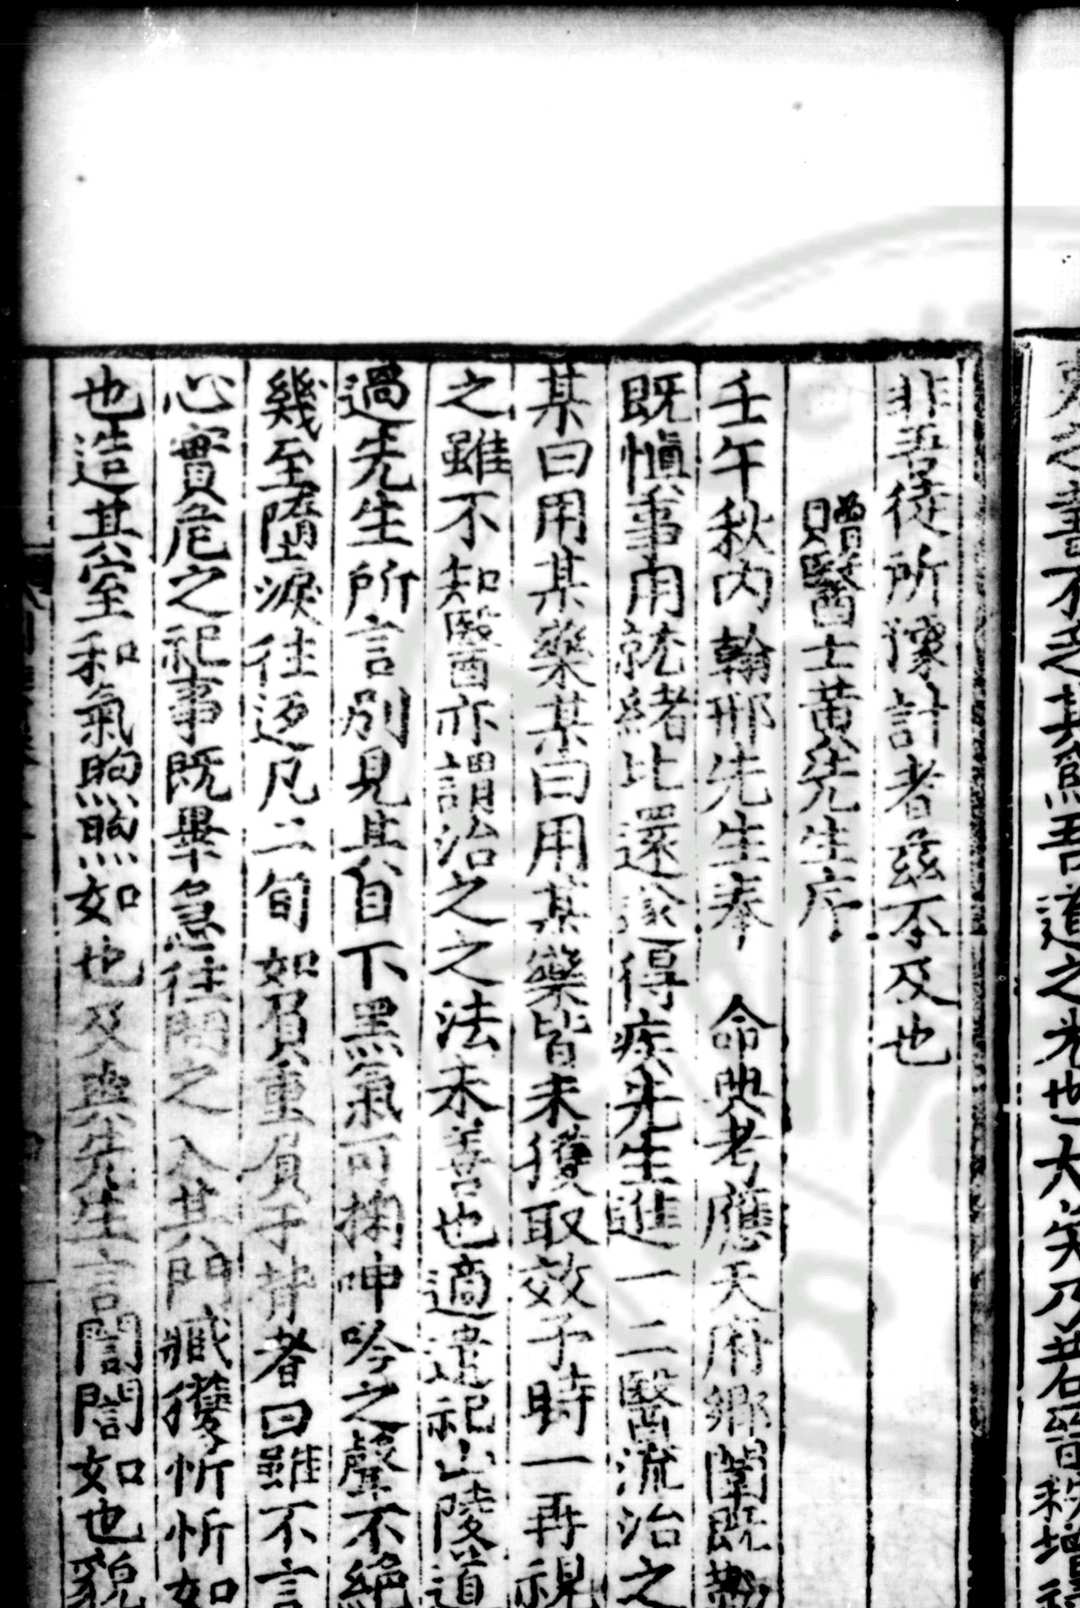 非吾從所隊計者茲不及也
贈醫士黃先生序
壬午秋內翰邢先生奉 命典考應天府鄉闈既
既愼事甫就緒比還遂得疾先生進一二醫流治之
某曰用某藥某曰用某藥皆未獲取效予時一再視
之雖不知醫亦謂治之之法未善也適遣祀山陵道
過先生所言別見其自下黑氣可掬呻吟之聲不絕
幾至墮淚往返凡二旬如負重負于背者曰雖不言
心實危之祀事既畢急往問之入其門臧獲忻忻如
也造其室和氣煦煦如也及與先生言誾誾如也貌